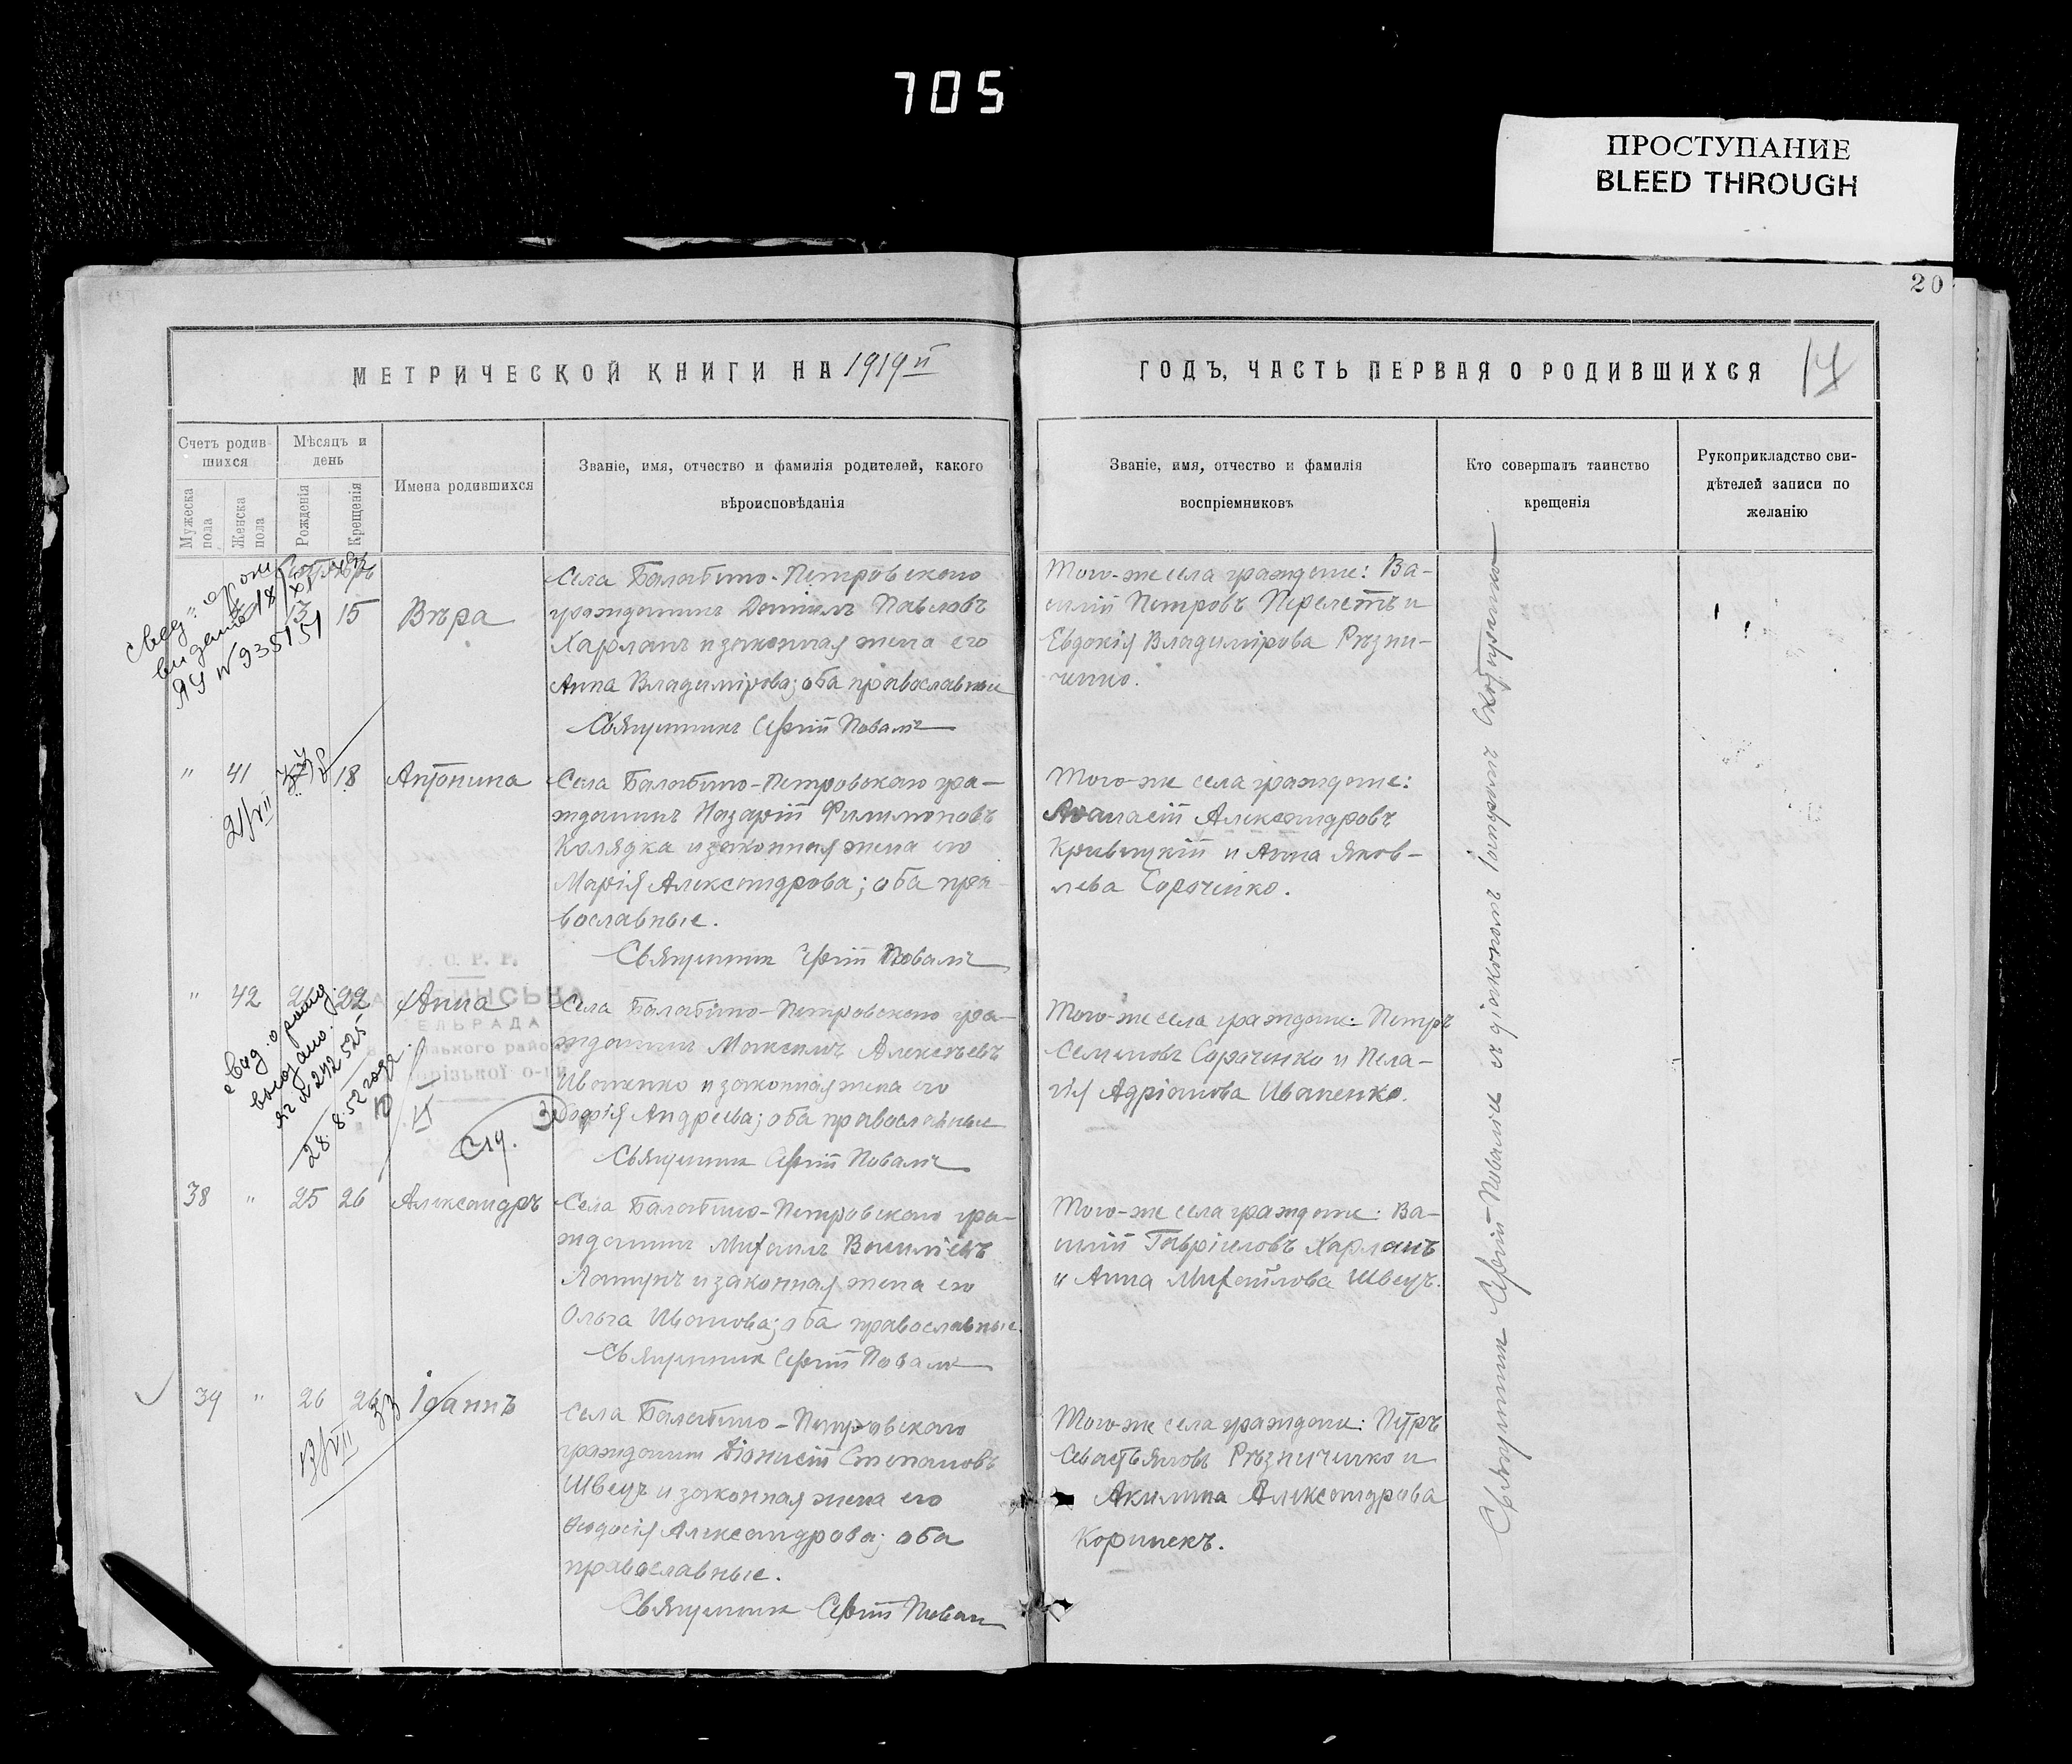 705
ПРОСТУПАНИЕ
BLEED THROUGH
20
МЕТРИЧЕСКОЙ КНИГИ НА 1919й
ГОДЪ, ЧАСТЬ ПЕРВАЯ О РОДИВШИХСЯ
14
Счетъ родив
шихся
Мужеска пола
Женска пола
Мѣсяцъ и
день
Рожденія
Крещенія
Имена родившихся
Званіе, имя, отчество и фамилія родителей, какого
вѣроисповѣданія
Званіе, имя, отчество и фамилія
воспріемниковъ
Кто совершалъ таинство
крещенія
Рукоприкладство сви-
дѣтелей записи по
желанію
13 15 Вѣра
Села Балабино-Петровскаго
гражданинъ Даніилъ Павловъ
Харланъ и законная жена его
Анна Владимірова; оба православные
Священникъ Сергій Поваля
Того-же села граждане: Ва-
силій Петровъ Перелетъ и
Евдокія Владимірова Рѣзни-
ченко.
ЯЧ № 938151
" 41 18 Антонина
21/VII
Села Балабино-Петровскаго гра-
жданинъ Назарій Филимоновъ
Колядка и законная жена его
Марія Александрова; оба пра-
вославные.
Священникъ Сергій Поваля
Того-же села граждане:
Аѳанасій Александровъ
Кривицкій и Анна Яков-
лева Сороченко.
" 42 21 22 Анна
свид. о рожд.
выслано.
ЯЧ № 242525
28.8.52 года
Села Балабино-Петровскаго гра-
жданинъ Максимъ Алексѣевъ
Иваненко и законная жена его
Софія Андреева; оба православные
Священникъ Сергій Поваля
Того-же села граждане: Петръ
Семеновъ Сороченко и Пела-
гія Адріанова Иваненко.
38 " 25 26 Александръ
Села Балабино-Петровскаго гра-
жданинъ Михаилъ Васильевъ
Лапунъ и законная жена его
Ольга Иванова; оба православные
Священникъ Сергій Поваля
Того-же села граждане: Ва-
силій Гавріиловъ Харланъ
и Анна Михайлова Швецъ.
39 " 26 26 Іоаннъ
13/VII
Села Балабино-Петровскаго
гражданинъ Діонисій Степановъ
Швецъ и законная жена его
Ѳеодосія Александрова; оба
православные.
Священникъ Сергій Поваля
Того-же села граждане: Петръ
Севастьяновъ Рѣзниченко и
Акилина Александрова
Коринекъ.
Священникъ Сергій Поваля съ діакономъ